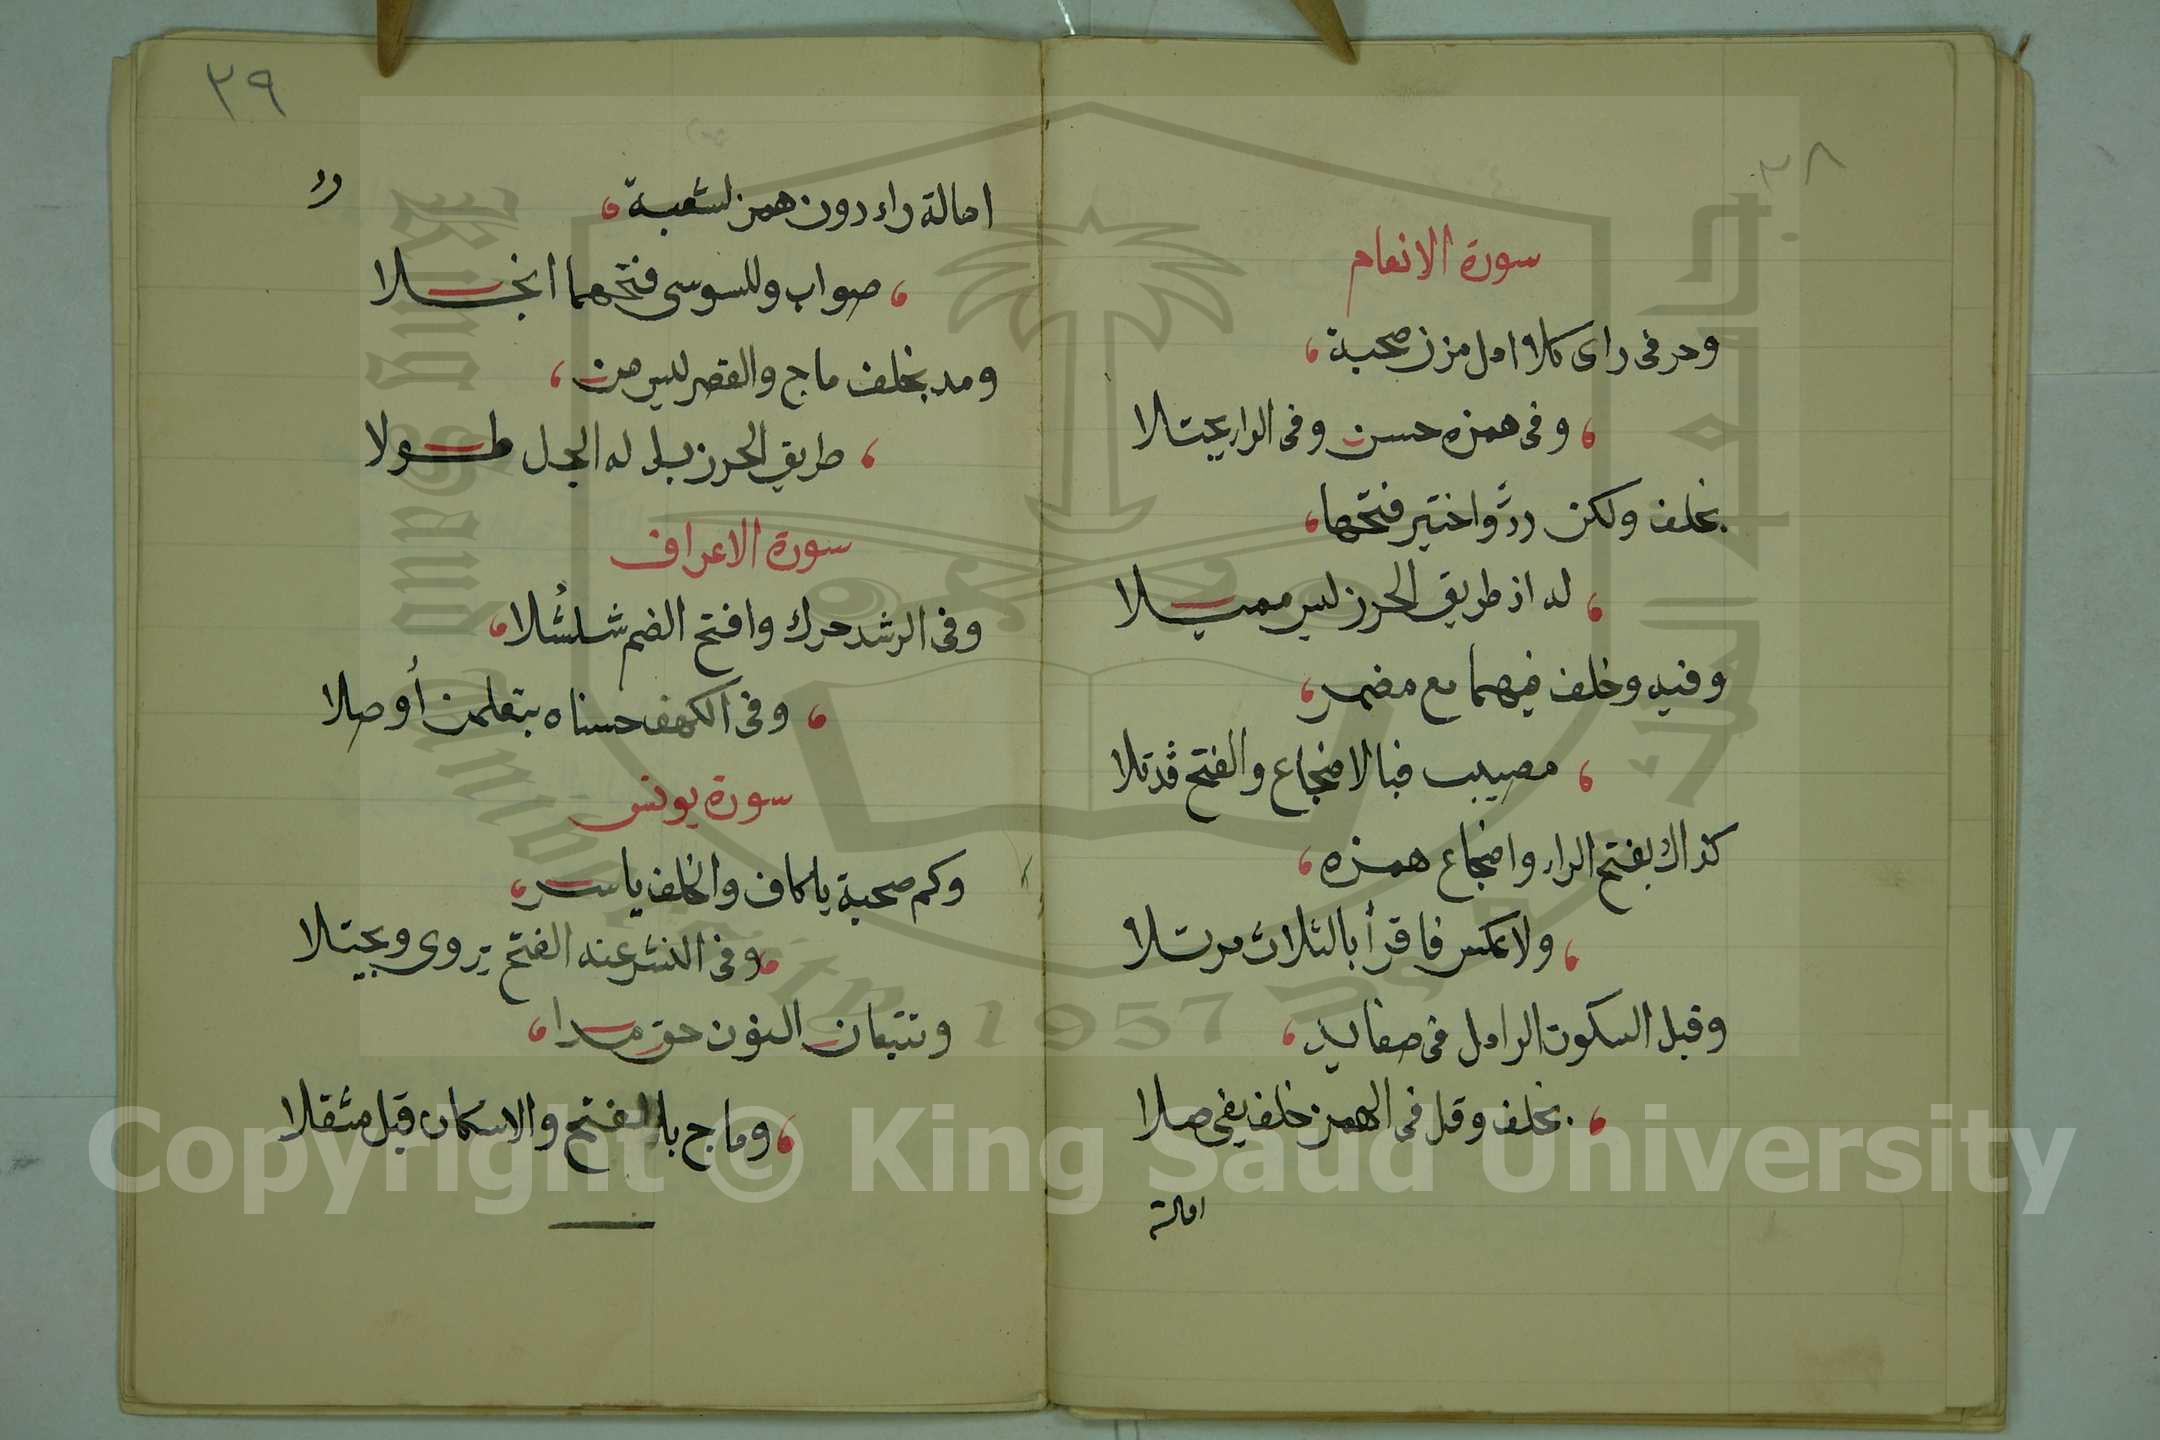 ٣٨
سورة الانعام
وحرفى راى كلا امل مزن صحبة
وفى همزه حسن وفى الراء يجتلا
بخلف ولكن ردَّ واختير فتحها
له اذ طريق الحرز ليس مميلا
وفيه وخلف فيهما مع مضمر
مصيب فبالاضجاع والفتح قد تلا
كذاك بفتح الراء واضجاع همزه
ولا عكس فاقرأ بالثلاث مرتلا
وقبل السكون الرا امل فى صفا يد
بخلف وقل فى الهمز خلف يفى صلا
امالة
٣٩
امالة راء دون همز لشعبة
صواب وللسوسى فتحهما انجلا
ومد بخلف ماج والقصر ليس من
طريق الحرز بل له البجل طولا
سورة الاعراف
وفى الرشد حرك وافتح الضم شلشلا
وفى الكهف حسناه بتعلمن أوصلا
سورة يونس
وكم صحبة يا كاف والخلف ياسر
وفى النشر عنه الفتح يروى ويجتلا
وتتبعان النون حق مدا
وماج بالفتح والاسكان قبل مثقلا
King Saud University
1957
Copyright © King Saud University